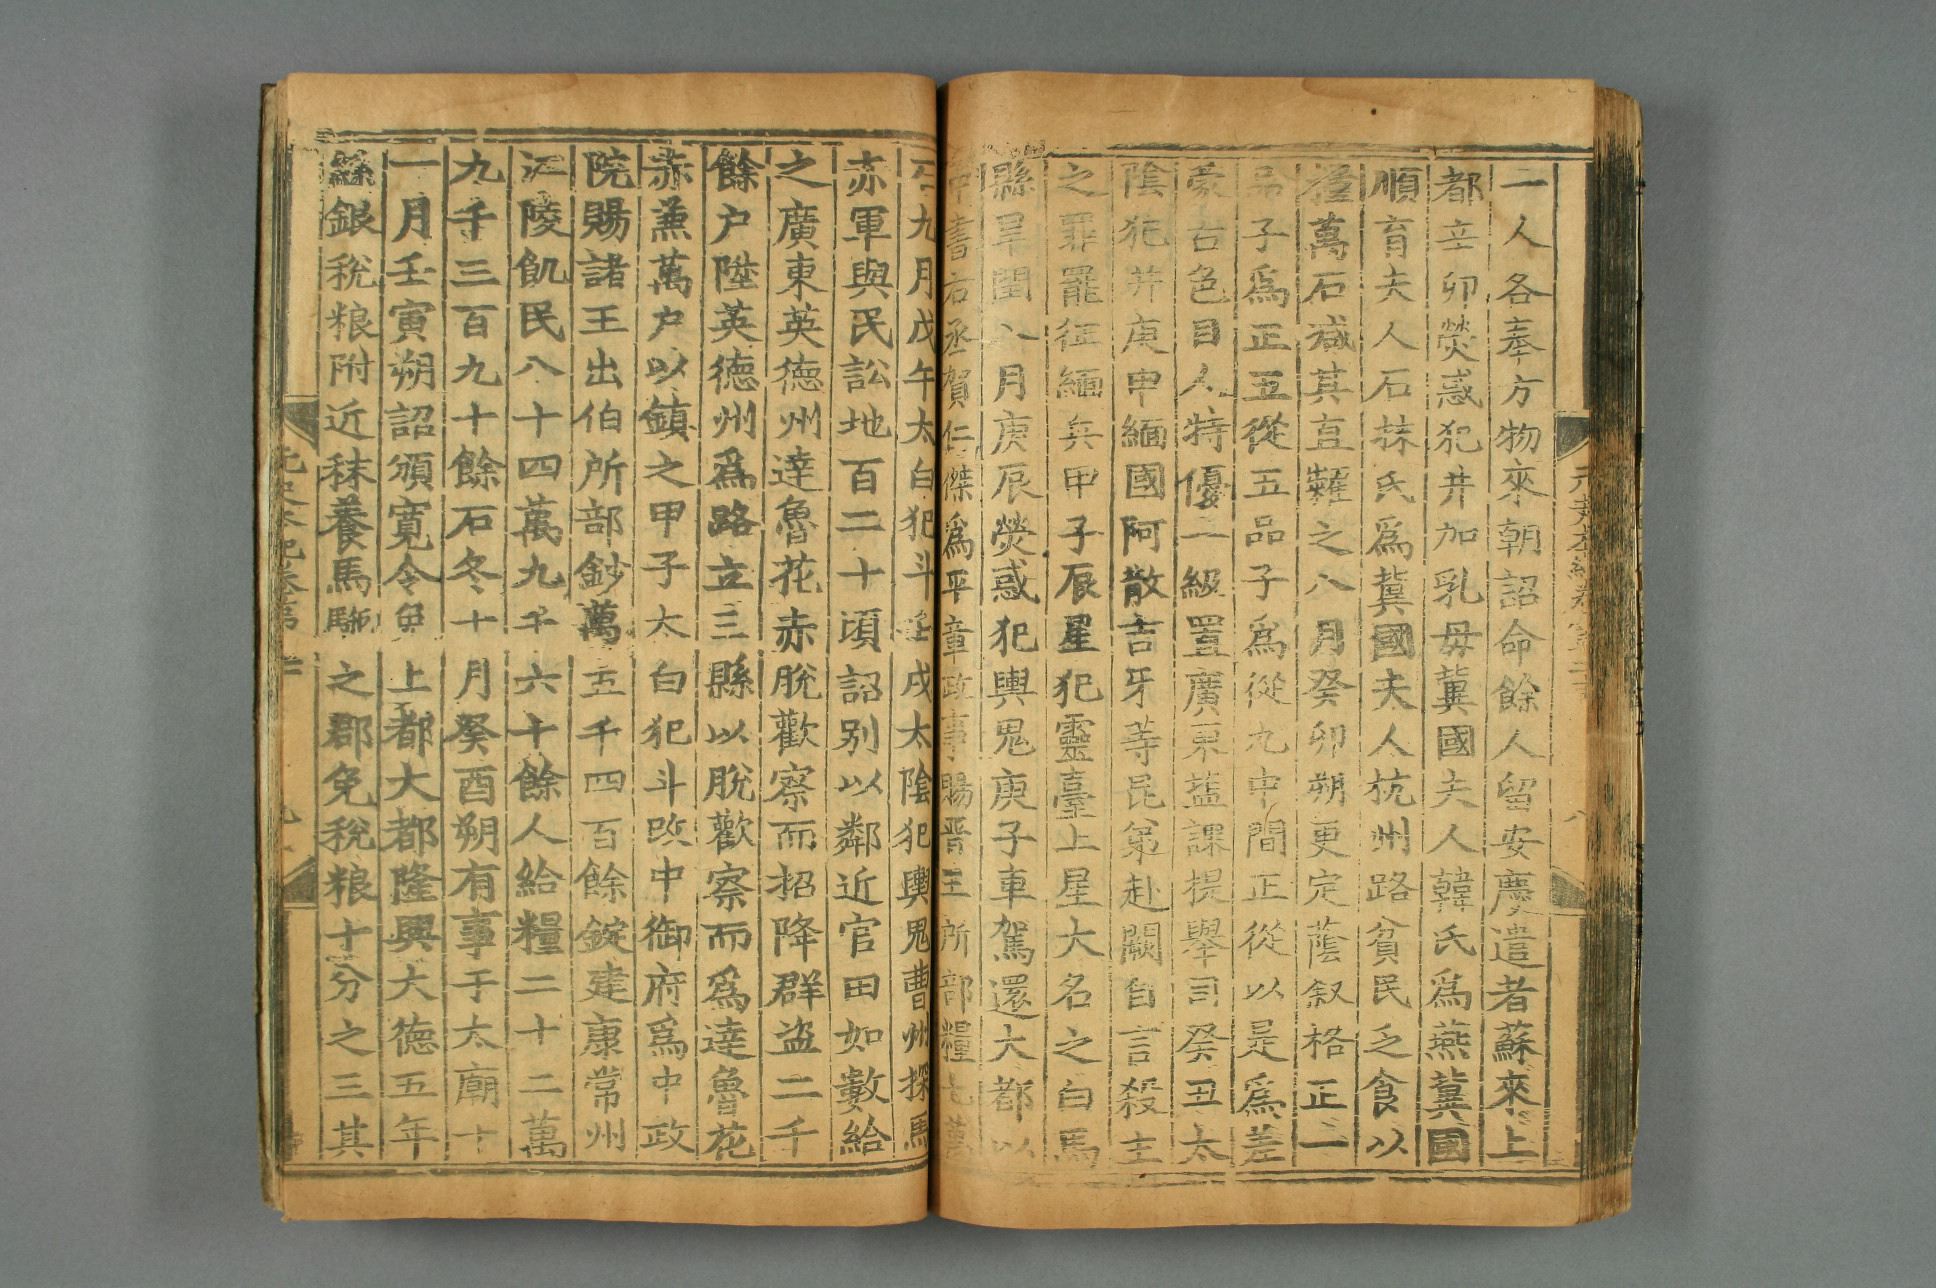 一人各奉方物來朝詔命餘人留安慶遣者蘇來上
都辛卯熒惑犯井加乳母冀國夫人韓氏爲燕冀國
順育夫人石抹氏爲冀國夫人杭州路貧民乏食以
糧萬石减其直糶之八月癸卯朔更定蔭叙格正一
品子爲正五從五品子爲從九中間正從以是爲差
蒙古色目人特優一級置廣東鹽課提舉司癸丑太
陰犯井庚申緬國阿散吉牙等昆弟赴闕自言殺主
之罪罷征緬兵甲子辰星犯靈臺上星大名之白馬
縣旱閏八月庚辰熒惑犯輿鬼庚子車駕還大都以
中書右丞賀仁傑爲平章政事賜晋王所部糧七萬
石九月戊午太白犯斗壬戌太陰犯輿鬼曹州探馬
赤軍與民訟地百二十頃詔别以鄰近官田如數給
之廣東英德州達魯花赤脫歡察而招降群盗二千
餘户陞英德州爲路立三縣以脫歡察而爲達魯花
赤兼萬户以鎮之甲子太白犯斗改中御府爲中政
院賜諸王出伯所部鈔萬五千四百餘錠建康常州
江陵飢民八十四萬九千六十餘人給糧二十二萬
九千三百九十餘石冬十月癸酉朔有事于太廟十
一月壬寅朔詔頒寬令免上都大都隆興大德五年
絲銀稅粮附近秣養馬駞之郡免稅粮十分之三其
元史本紀卷第二十
九